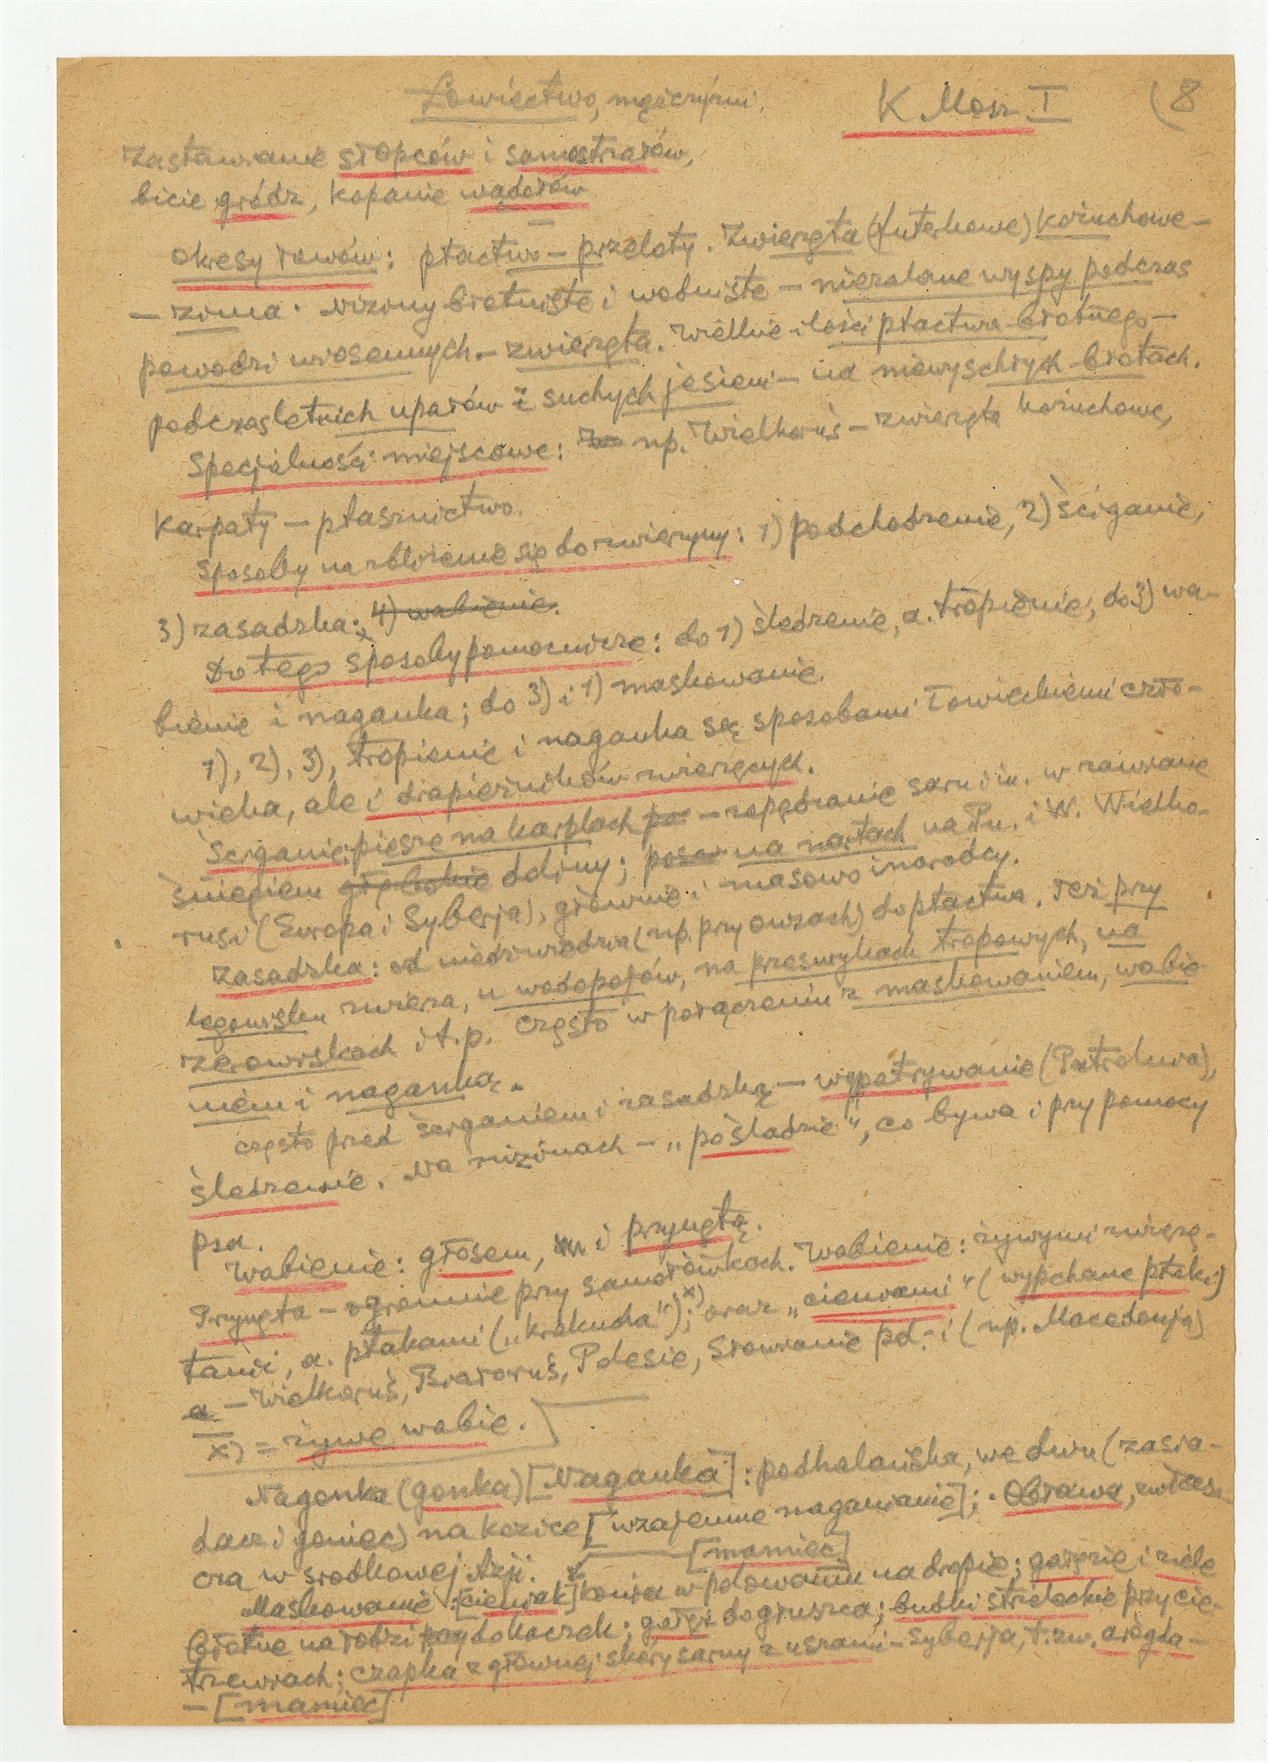 Łowiectwo, mężczyźni. K Mosz I (8
Zastawianie słopców i samostrzałów,
bicie gródz, kopanie wądołów
Okresy łowów: ptactwo – przeloty. Zwierzęta (futerkowe) kożuchowe –
– zima. Niziny błotniste i wodniste – niezalane wyspy podczas
powodzi wiosennych – zwierzęta. Wielkie ilości ptactwa błotnego –
podczas letnich upałów i suchych jesieni – na niewyschłych błotach.
Specjalności miejscowe: np. Wielkoruś – zwierzęta kożuchowe,
Karpaty – ptasznictwo.
Sposoby na zbliżenie się do zwierzyny: 1) podchodzenie, 2) ściganie,
3) zasadzka; 4) wabienie.
Do tego sposoby pomocnicze: do 1) śledzenie, a. tropienie, do 3) wa-
bienie i naganka; do 3) i 1) maskowanie.
1), 2), 3), tropienie i naganka są sposobami łowieckiemi czło-
wieka, ale i drapieżników zwierzęcych.
Ściganie: piesze na karplach – zapędzanie sarn i in. w zawiane
śniegiem głębokie doliny; na nartach na Pn. i W. Wielko-
rusi (Europa i Syberja), głównie i masowo inorodcy.
Zasadzka: od niedźwiedzia (np. przy owsach) do ptactwa. Też przy
legowisku zwierza, u wodopojów, na przesmykach tropowych, na
żerowiskach i t.p. Często w połączeniu z maskowaniem, wabie-
niem i naganką.
Często przed ściganiem i zasadzką – wypatrywanie (Patrolwa),
śledzenie. Na nizinach – „pośladzie", co bywa i przy pomocy
psa.
Wabienie: głosem, i przynętą.
Przynęta – ogromnie przy samołówkach. Wabienie: żywymi zwierzę-
tami, a. ptakami („krakucha")x); oraz „cieniami" (wypchane ptaki)
– Wielkoruś, Białoruś, Polesie, Słowianie pd. i (np. Macedonja)
x) = żywe wabie.
Nagonka (gonka) [Naganka]: podhalańska, we dwu (zasia-
dacz i goniec) na kozice [wzajemne naganianie]; Obława, zwłasz-
cza w środkowej Azji. [mamiec]
Maskowanie: [cieniak] konia w polowaniu na dropie; gałęzie i ziele
błotne na łodzi do kaczek; gałęzi do głuszca; budki strzeleckie przy cie-
trzewiach; czapka z głównej skóry sarny z uszami – Syberja, t. zw. arogda –
– [mamiec]